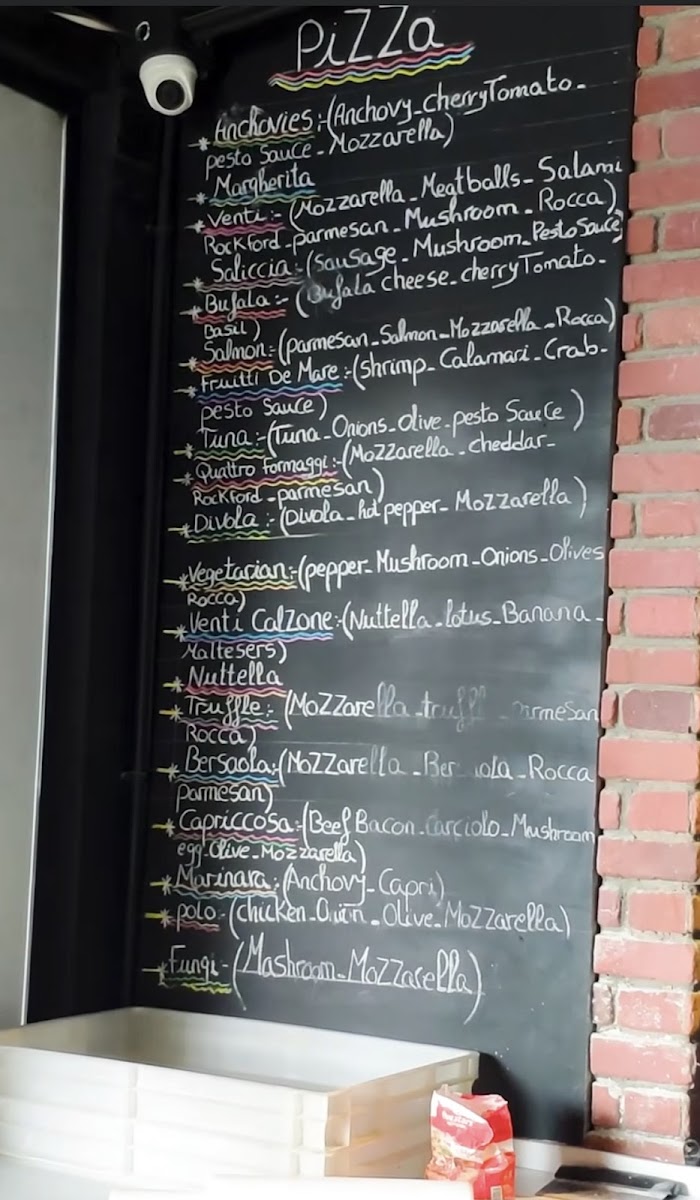 PiZZa
Anchovies:-(Anchovy_cherryTomato_
pesto Sauce_Mozzarella)
Margherita
Venti:-(Mozzarella_Meatballs_Salami
Rockford_parmesan_Mushroom_Rocca)
Saliccia:-(Sausage_Mushroom_PestoSauce)
Bufala:-(Bufala cheese_cherryTomato_
basil)
Salmon:-(parmesan_Salmon_Mozzarella_Rocca)
Fruitti De Mare:-(shrimp_Calamari_Crab_
pesto Sauce)
Tuna:-(Tuna_Onions_Olive_pesto Sauce)
Quattro formaggi:-(Mozzarella_cheddar_
Rockford_parmesan)
Divola:-(Divola_hot pepper_Mozzarella)
Vegetarian:-(pepper_Mushroom_Onions_Olives
Rocca)
Venti Calzone:-(Nuttella_lotus_Banana_
Maltesers)
Nuttella
Truffle:-(Mozzarella_truffl
Rocca)
Bersaola:-(Mozzarella_Rocca
parmesan)
Capriccosa:-(Beef Bacon_Carciolo_Mushroom
egg_Olive_Mozzarella)
Marinara:(Anchovy_Capri)
polo-(chicken_Onion_Olive_Mozzarella)
Fungi-(Mashroom_Mozzarella)